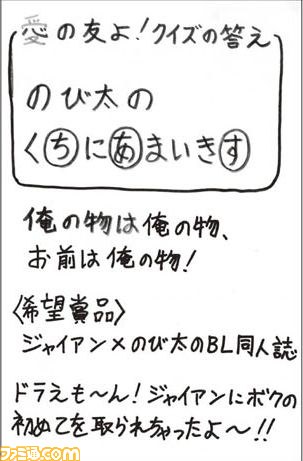 愛の友よ！クイズの答え
のび太の
くちにあまいきす
俺の物は俺の物、
お前は俺の物！
〈希望賞品〉
ジャイアン×のび太のBL同人誌
ドラえも〜ん！ジャイアンにボクの
初めてを取られちゃったよ〜！！
ファミ通.com